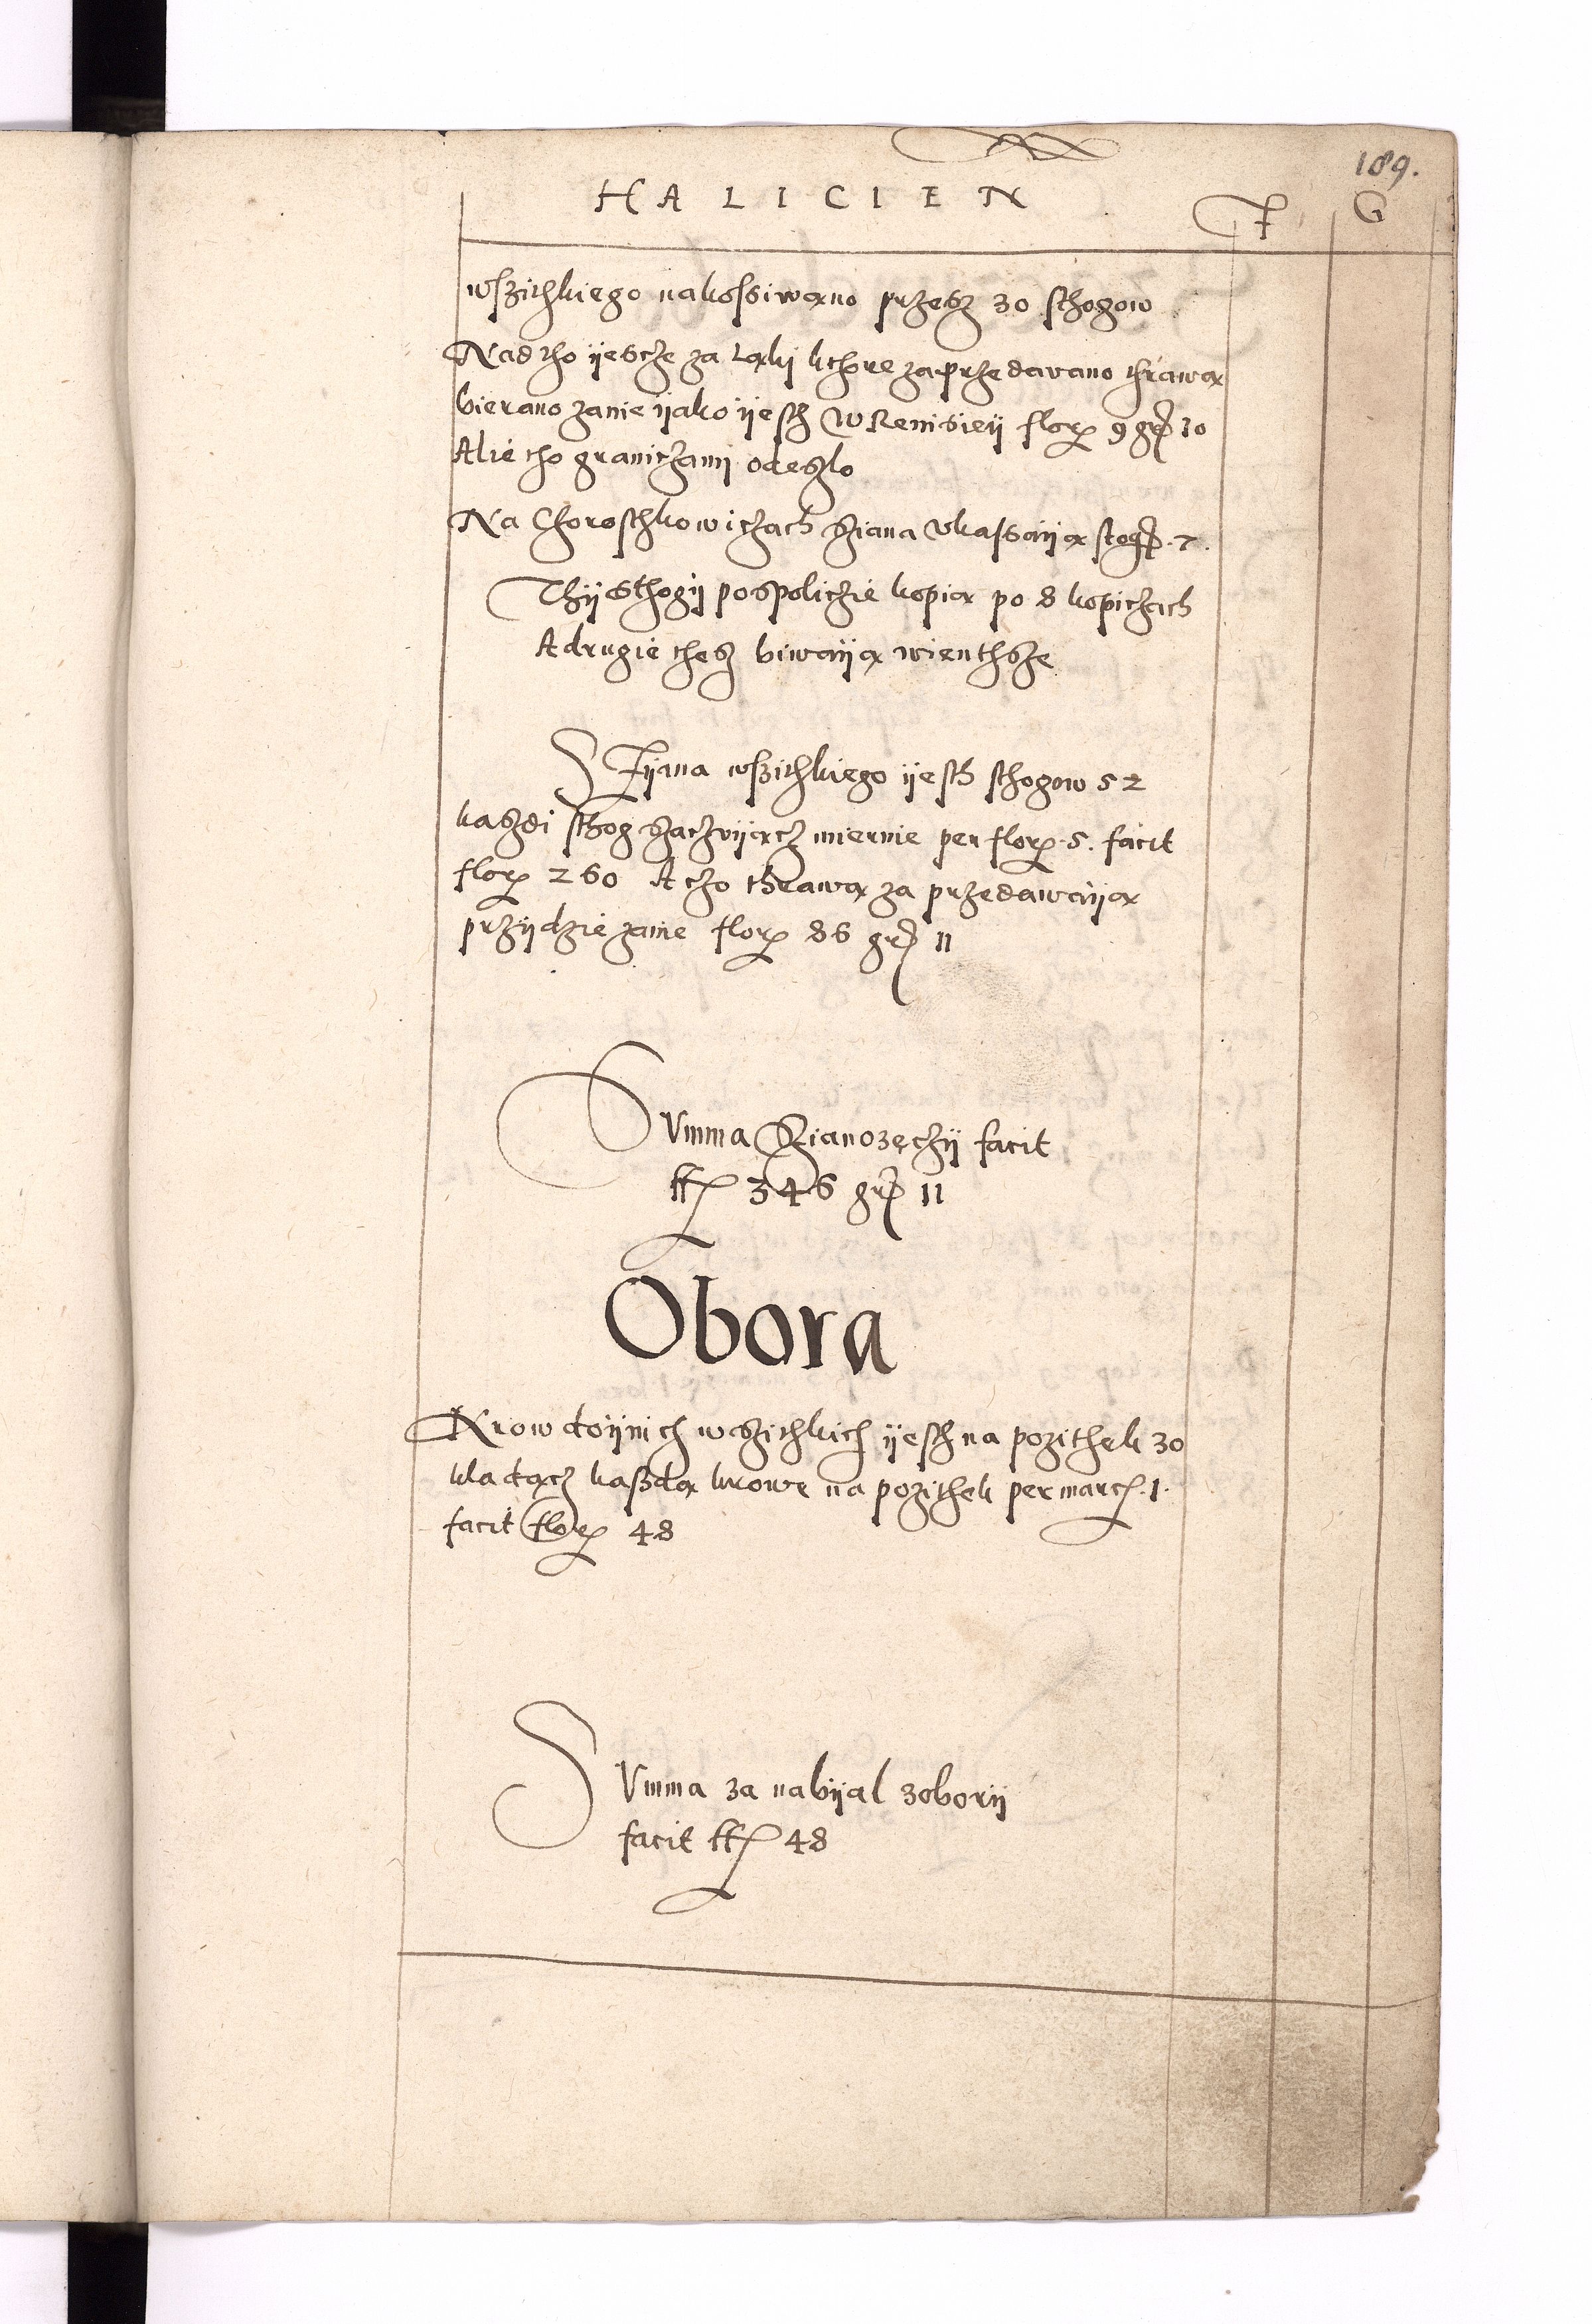 189.
HALICIEN
F G
wszithkiego nakossiwano przesz 30 sthogow
Nad tho ijescze za Ląkij kthore zaprzedavano thrawą
bierano zanie ijako ijesth w Remisieij flor 9 gr 10
Alie tho graniczami odeszlo
Na Choroschkowiczach Siana vkassaiją stog 7.
Thij sthogij pospoliczie kopią po 8 kopiczach
A drugie thesz biwaiją wienthsze
Sijana wszithkiego ijesth sthogow 52
kaszdi sthog szaczuijącz miernie per flor 5. facit
flor 260 A czo thrawą za przedawaiją
przijdzie zanie flor 86 gr 11
Summa Sianozęczij facit
ff 346 gr 11
Obora
Krow doijnich wszithkich ijesth na pozithek 30
kladącz kaszdą krowę na pozithek per marc. 1.
facit flor 48
Summa za nabijal z oborij
facit ff 48